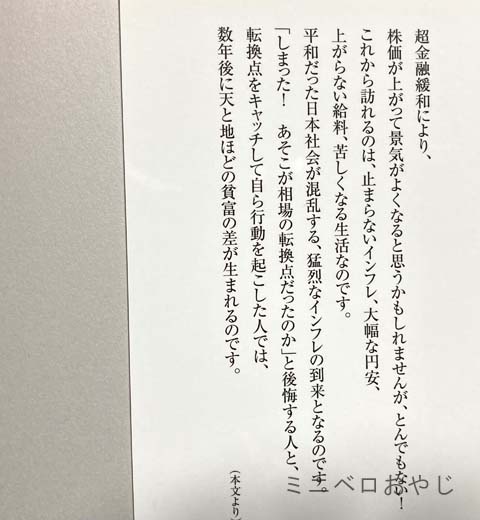 超金融緩和により、
株価が上がって景気がよくなると思うかもしれませんが、とんでもない!
これから訪れるのは、止まらないインフレ、大幅な円安、
上がらない給料、苦しくなる生活なのです。
平和だった日本社会が混乱する、猛烈なインフレの到来となるのです。
「しまった! あそこが相場の転換点だったのか」と後悔する人と、
転換点をキャッチして自ら行動を起こした人では、
数年後に天と地ほどの貧富の差が生まれるのです。
(本文より)
ミニベロおやじ